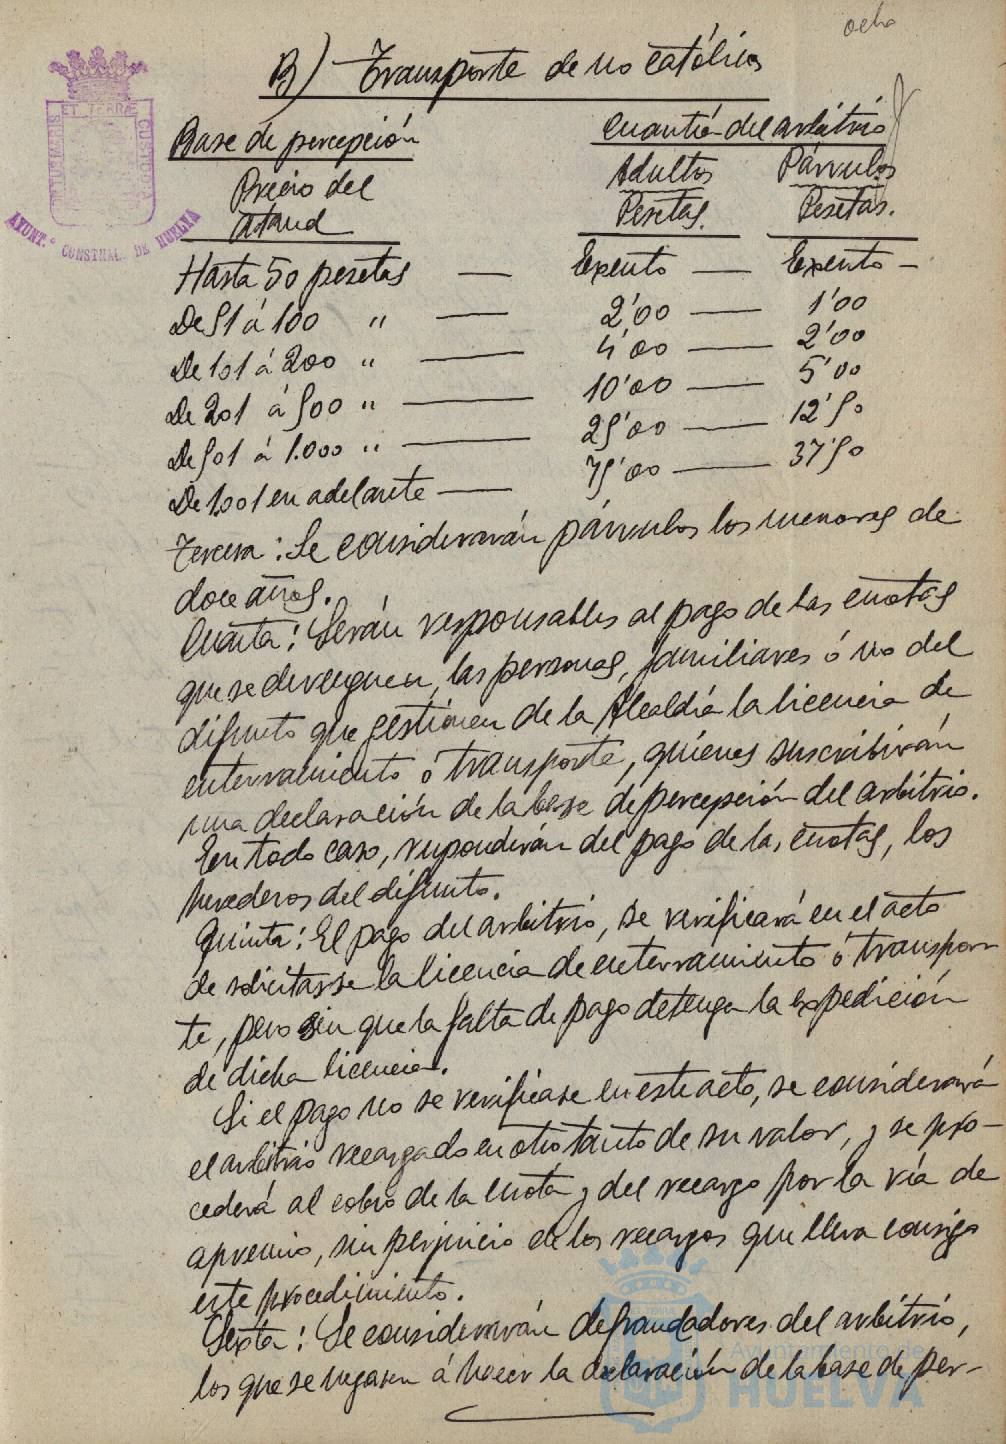 ocho
B) Transporte de no católicos
Base de percepción
Cuantía del arbitrio
Precio del
Ataud
Adultos
Párvulos
Pesetas.
Pesetas.
Hasta 50 pesetas — Exento — Exento —
De 51 á 100 " — 2'00 — 1'00
De 101 á 200 " — 4'00 — 2'00
De 201 á 500 " — 10'00 — 5'00
De 501 á 1.000 " — 25'00 — 12'50
De 1.001 en adelante — 75'00 — 37'50
Tercera: Se considerarán párvulos los menores de
doce años.
Cuarta: Serán responsables al pago de las cuotas
que se devenguen, las personas, familiares ó no del
difunto que gestionen de la Alcaldía la licencia de
enterramiento ó transporte, quienes suscribirán
una declaración de la base de percepción del arbitrio.
En todo caso, responderán del pago de las cuotas, los
herederos del difunto.
Quinta: El pago del arbitrio, se verificará en el acto
de solicitarse la licencia de enterramiento ó transpor-
te, pero sin que la falta de pago detenga la expedición
de dicha licencia.
Si el pago no se verificase en este acto, se considerará
el arbitrio recargado en otro tanto de su valor, y se pro-
cederá al cobro de la cuota y del recargo por la vía de
apremio, sin perjuicio de los recargos que lleva consigo
este procedimiento.
Sexta: Se considerarán defraudadores del arbitrio,
los que se negasen á hacer la declaración de la base de per-
ET TERRÆ
CUSTODIA
PORTUS MARIS
AYUNT.º CONSTNAL. DE HUELVA
Ayuntamiento de
HUELVA